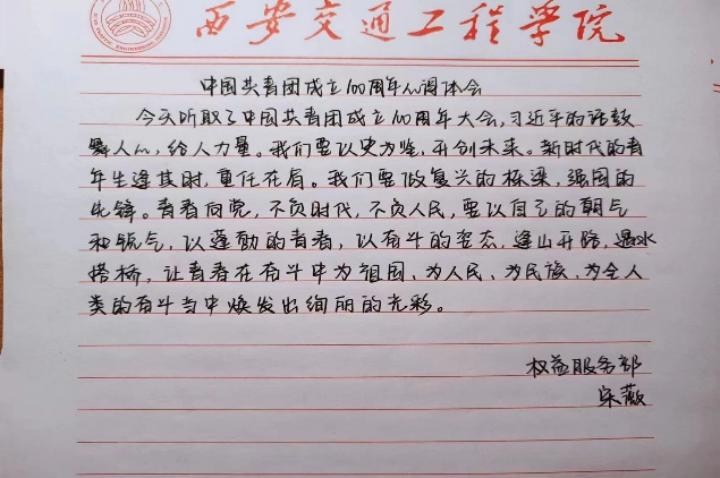 西安交通工程学院
中国共青团成立100周年心得体会
今天听取了中国共青团成立100周年大会，习近平的话鼓
舞人心，给人力量。我们要以史为鉴，开创未来。新时代的青
年生逢其时，重任在肩。我们要做复兴的栋梁，强国的
先锋。青春向党，不负时代，不负人民，要以自己的朝气
和锐气，以蓬勃的青春，以奋斗的姿态，逢山开路，遇水
搭桥，让青春在奋斗中为祖国、为人民、为民族、为全人
类的奋斗当中焕发出绚丽的光彩。
权益服务部
宋薇